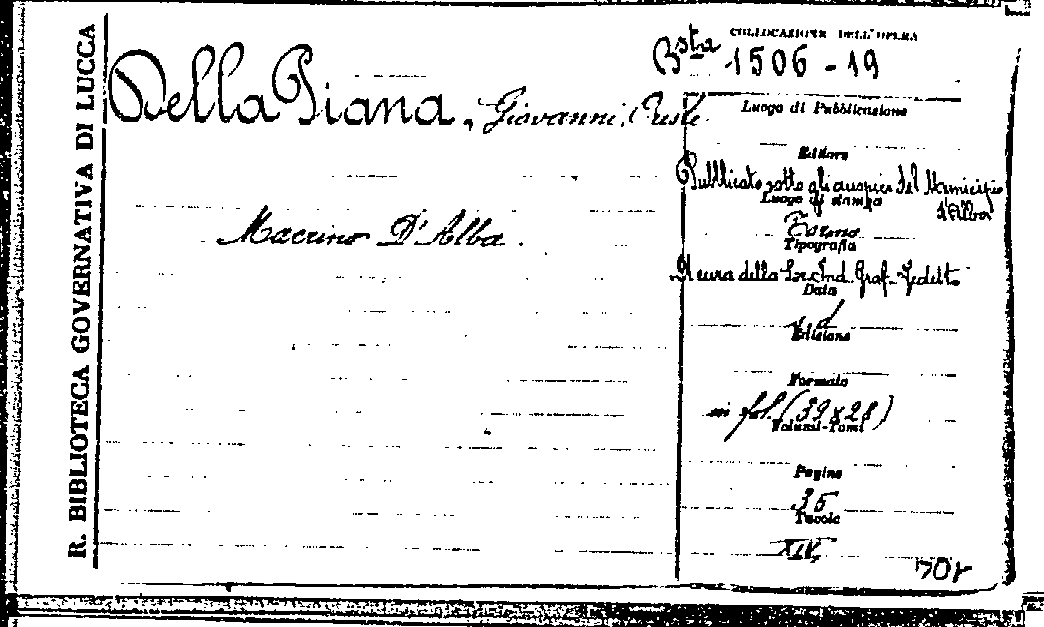 R. BIBLIOTECA GOVERNATIVA DI LUCCA
Della Piana, Giovanni,
Macrino D'Alba.
COLLOCAZIONE DELL'OPERA
Bsta 1506-19
Luogo di Pubblicazione
Editore
Pubblicato sotto gli auspici del Municipio
d'Alba
Luogo di stampa
Torino
Tipografia
A cura della Soc. Ind. Graf.
Data
s. d.
Edizione
Formato
in fol. (39x28)
Volumi-Tomi
Pagine
35
Tavole
XIV